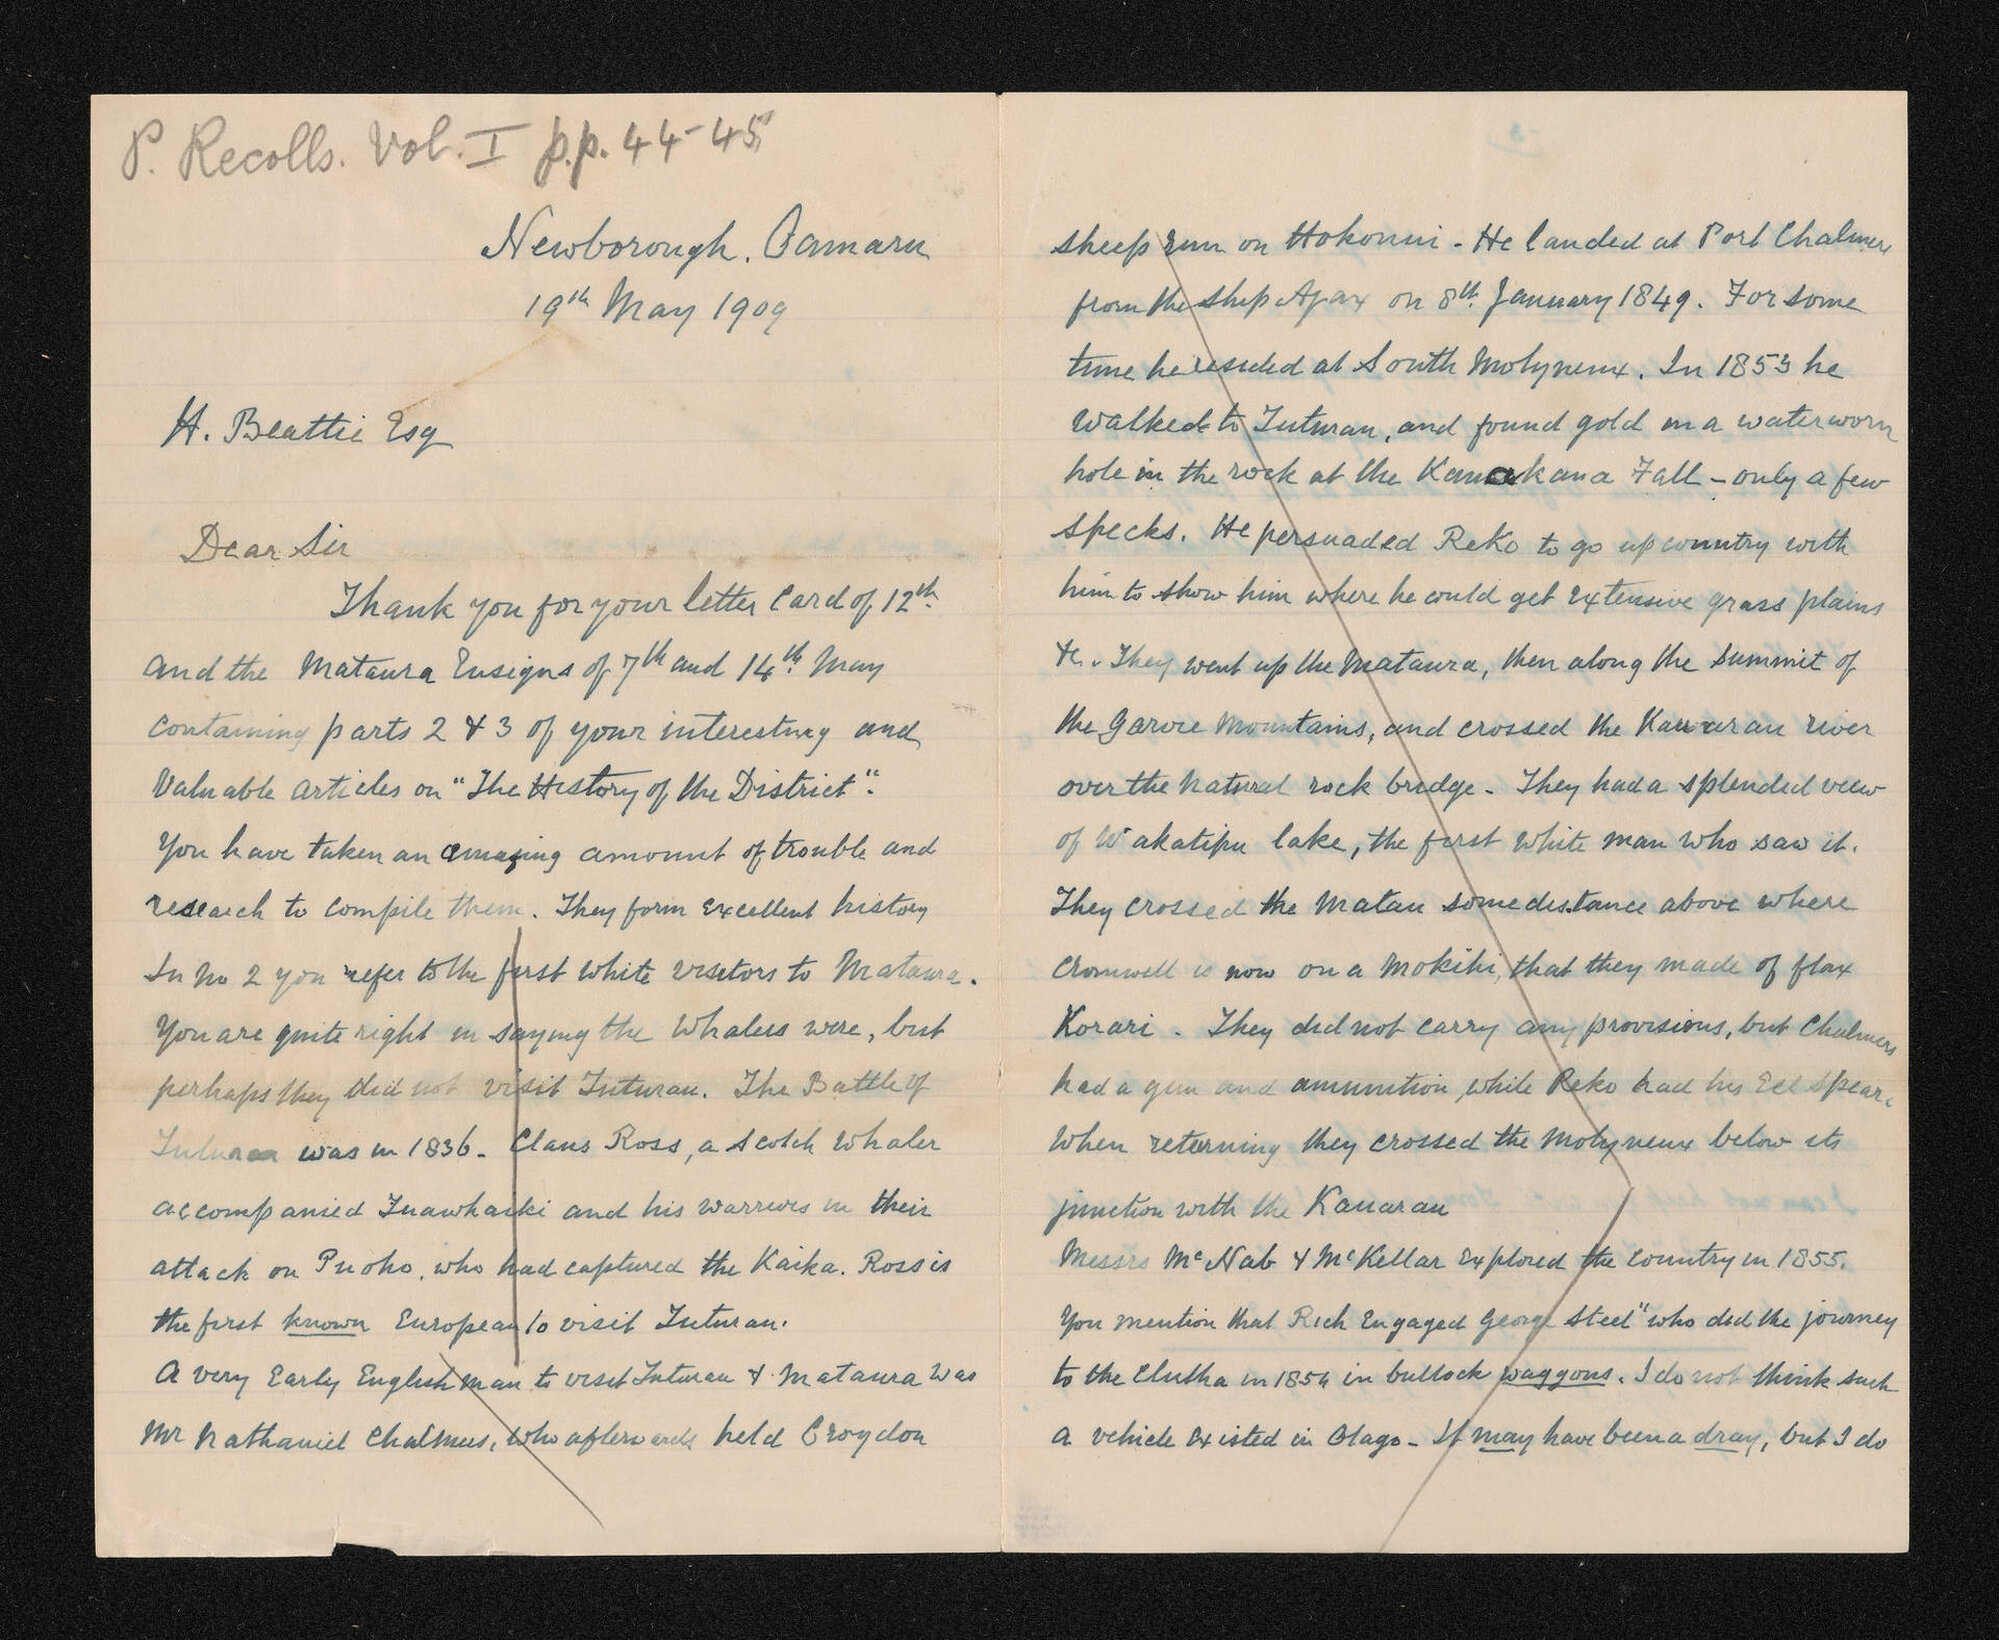 P. Recolls. Vol. I p.p. 44-45
Newborough. Oamaru
19th May 1909
H. Beattie Esq
Dear Sir
Thank you for your letter Card of 12th
and the Mataura Ensigns of 7th and 14th May
containing parts 2 & 3 of your interesting and
Valuable articles on "The History of the District".
You have taken an amazing amount of trouble and
research to compile them. They form excellent history
In No 2 you refer to the first white visitors to Mataura.
You are quite right in saying the Whalers were, but
perhaps they did not visit Tuturau. The Battle of
Tuturau was in 1836. Claus Ross, a Scotch Whaler
accompanied Tuawhaiki and his warriors in their
attack on Puoho, who had captured the Kaika. Ross is
the first known European to visit Tuturau.
A very Early Englishman to visit Tuturau & Mataura was
Mr Nathaniel Chalmers, who afterwards held Croydon
sheep run on Hokonui - He landed at Port Chalmers
from the ship Ajax on 8th January 1849. For some
time he resided at South Molyneux. In 1853 he
walked to Tuturau, and found gold in a water worn
hole in the rock at the Kanakana Fall - only a few
specks. He persuaded Reko to go up country with
him to show him where he could get extensive grass plains
&c. They went up the Mataura, then along the summit of
the Garvie Mountains, and crossed the Kawarau river
over the natural rock bridge. They had a splended view
of Wakatipu lake, the first white man who saw it.
They crossed the Matau some distance above where
Cromwell is now on a Mokihi, that they made of flax
Korari. They did not carry any provisions, but Chalmers
had a gun and ammunition, while Reko had his Eel spear.
When returning they crossed the Molyneux below its
junction with the Kauarau
Messrs McNab & McKellar explored the country in 1855.
You mention that Rich Engaged George Steel "who did the journey
to the Clutha in 1854 in bullock waggons. I do not think such
a vehicle existed in Otago - It may have been a dray, but I do